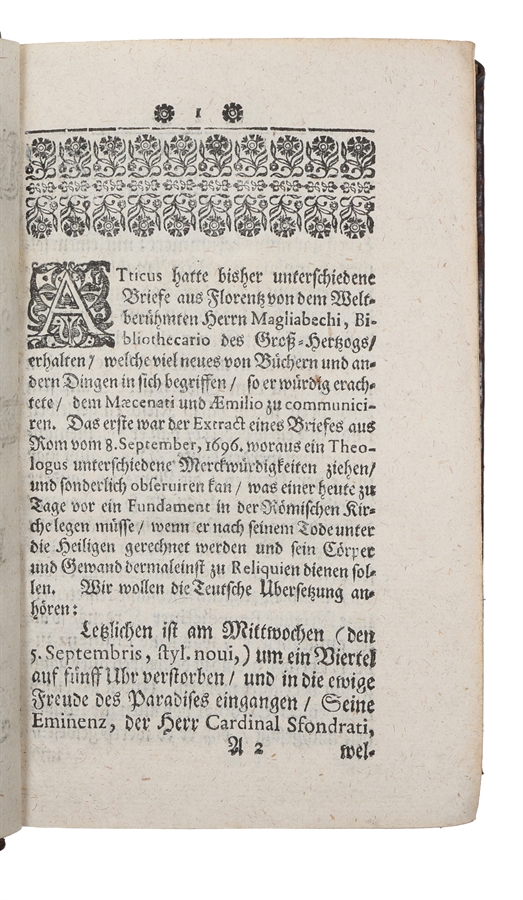 1
ATticus hatte bisher unterschiedene
Briefe aus Florentz von dem Welt-
berühmten Herrn Magliabechi, Bi-
bliothecario des Groß-Hertzogs/
erhalten/ welche viel neues von Büchern und an-
dern Dingen in sich begriffen/ so er würdig erach-
tete/ dem Mæcenati und Æmilio zu communici-
ren. Das erste war der Extract eines Briefes aus
Rom vom 8. September, 1696. woraus ein Theo-
logus unterschiedene Merckwürdigkeiten ziehen/
und sonderlich obseruiren kan/ was einer heute zu
Tage vor ein Fundament in der Römischen Kir-
che legen müsse/ wenn er nach seinem Tode unter
die Heiligen gerechnet werden und sein Cörper
und Gewand dermaleinst zu Reliquien dienen sol-
len. Wir wollen die Teutsche Übersetzung an-
hören:
Letzlichen ist am Mittwochen (den
5. Septembris, styl. noui,) um ein Viertel
auf fünff Uhr verstorben/ und in die ewige
Freude des Paradises eingangen/ Seine
Emineñz, der Herr Cardinal Sfondrati,
A 2 wel-